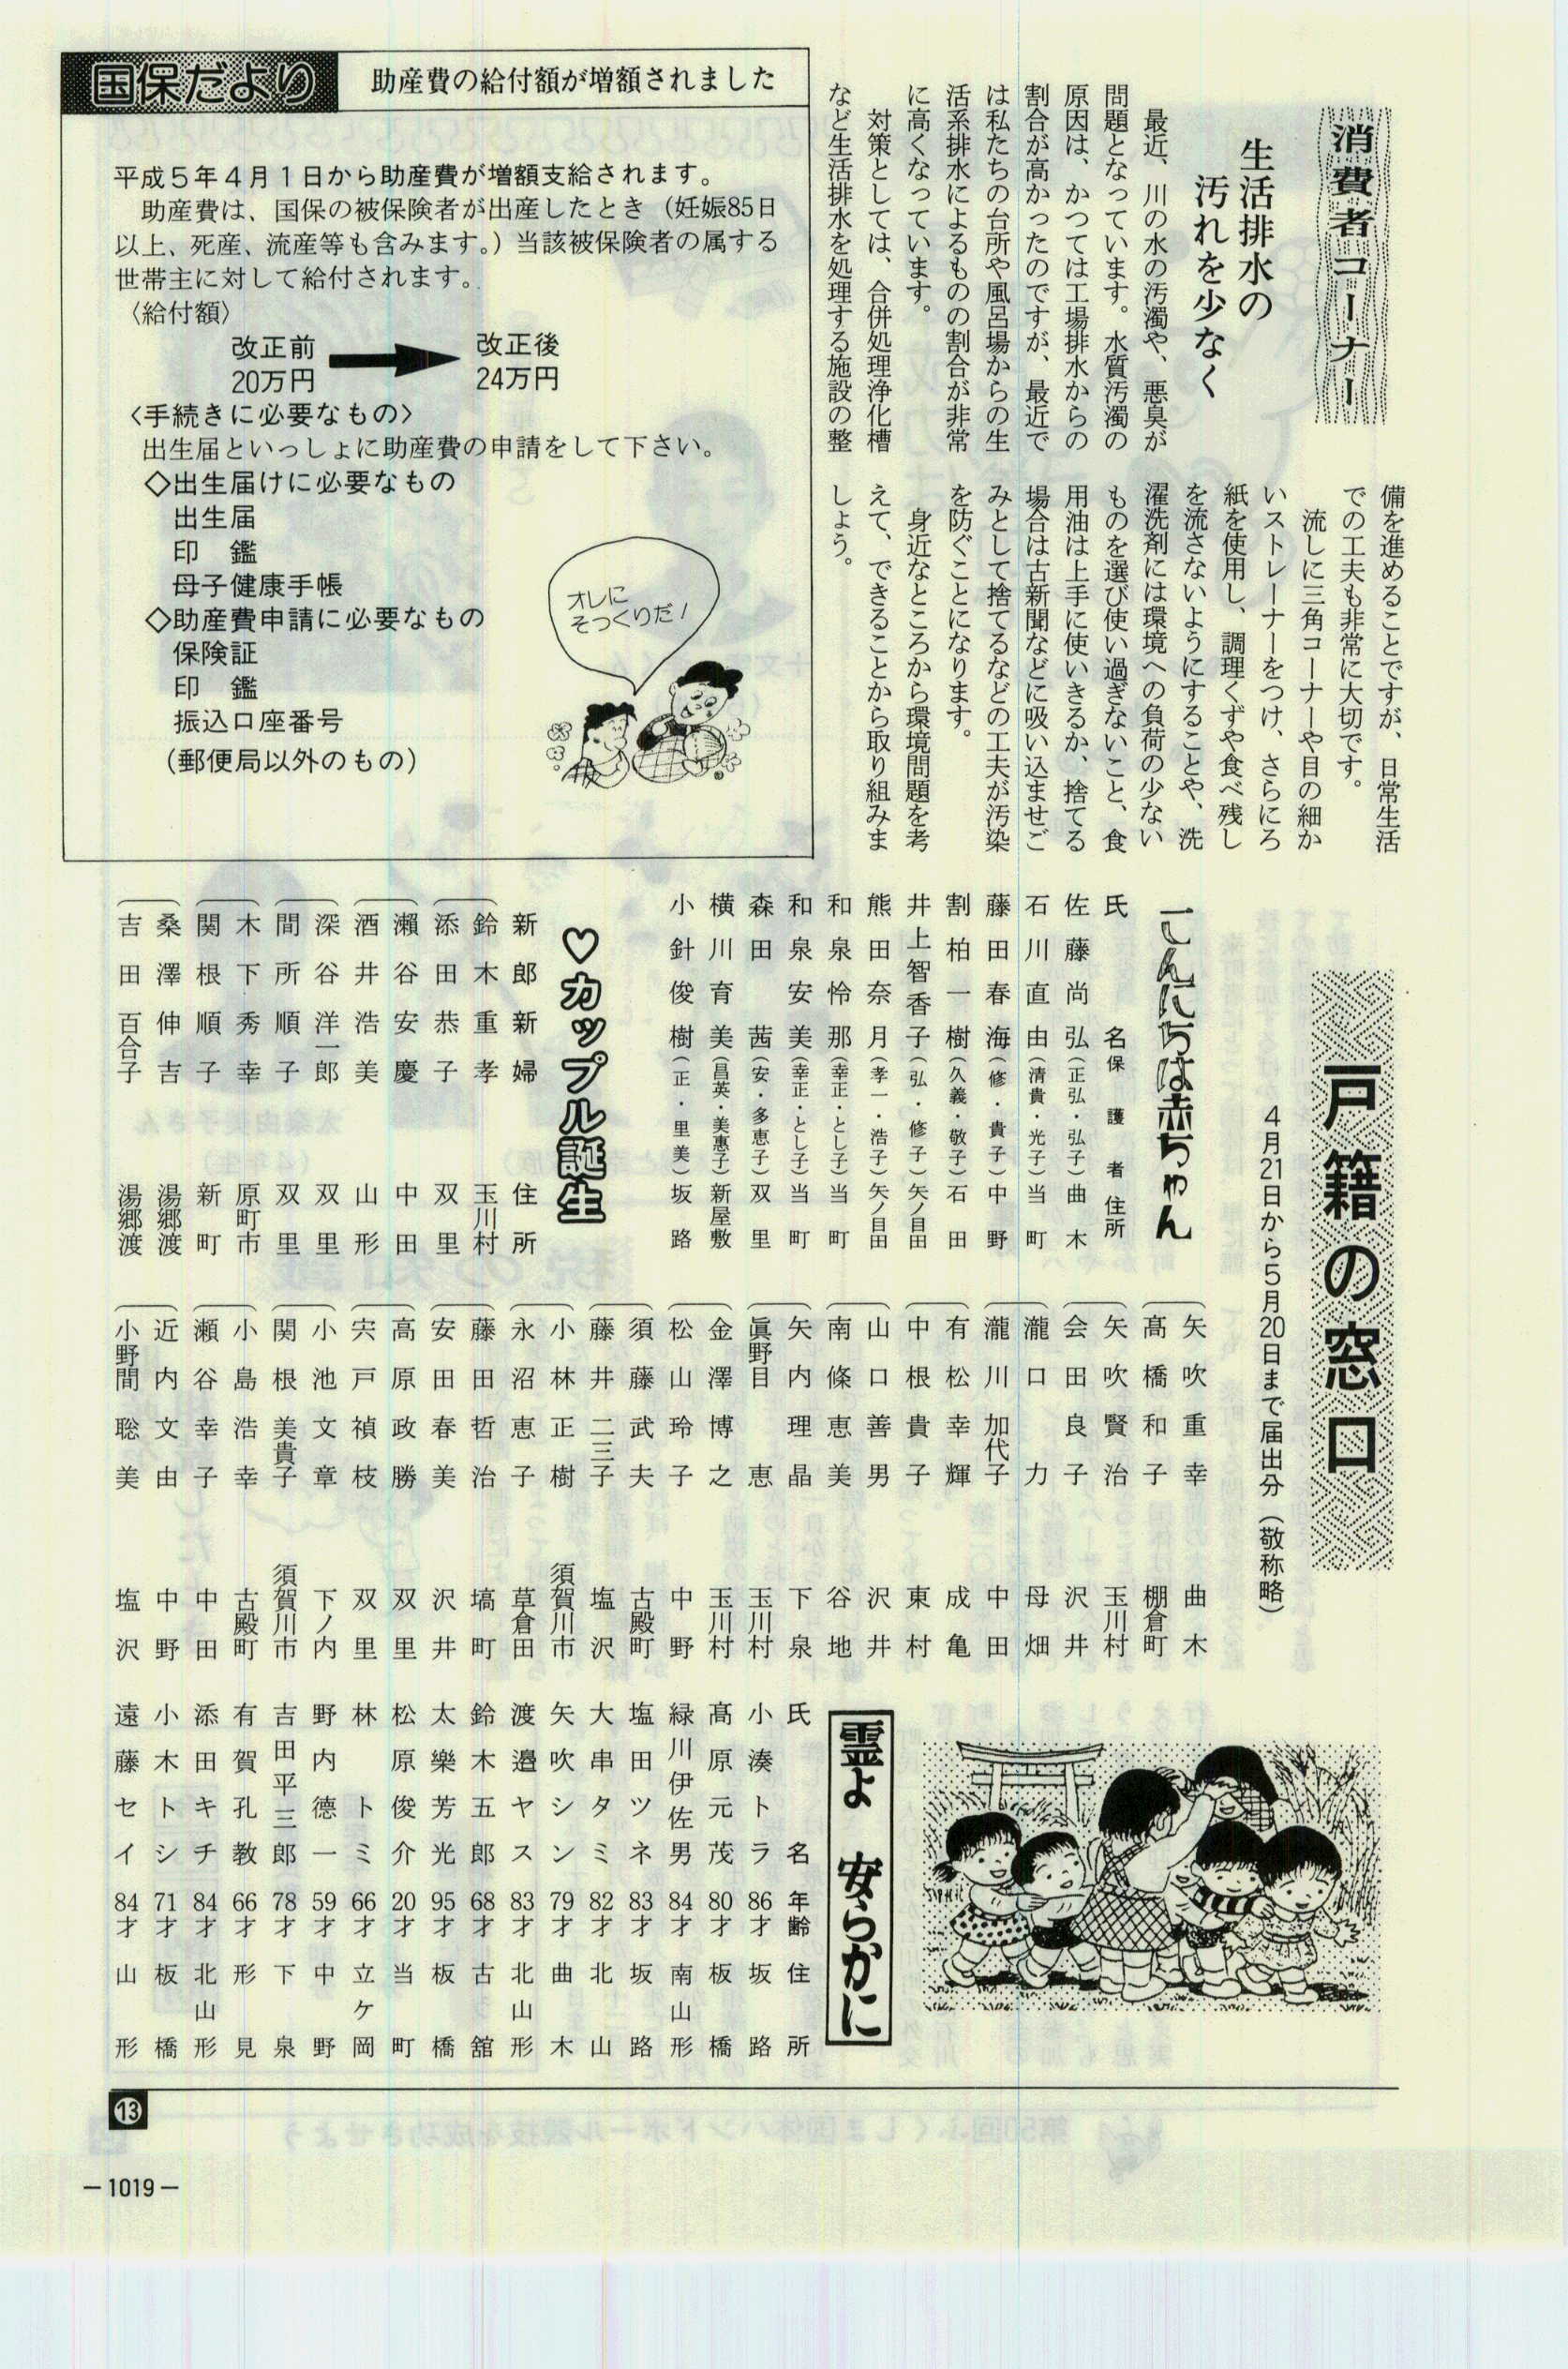 消費者コーナー
生活排水の
汚れを少なく
最近、川の水の汚濁や、悪臭が
問題となっています。水質汚濁の
原因は、かつては工場排水からの
割合が高かったのですが、最近で
は私たちの台所や風呂場からの生
活系排水によるものの割合が非常
に高くなっています。
対策としては、合併処理浄化槽
など生活排水を処理する施設の整
備を進めることですが、日常生活
での工夫も非常に大切です。
流しに三角コーナーや目の細か
いストレーナーをつけ、さらにろ
紙を使用し、調理くずや食べ残し
を流さないようにすることや、洗
濯洗剤には環境への負荷の少ない
ものを選び使い過ぎないこと、食
用油は上手に使いきるか、捨てる
場合は古新聞などに吸い込ませご
みとして捨てるなどの工夫が汚染
を防ぐことになります。
身近なところから環境問題を考
えて、できることから取り組みま
しょう。
国保だより
助産費の給付額が増額されました
平成5年4月1日から助産費が増額支給されます。
助産費は、国保の被保険者が出産したとき（妊娠85日
以上、死産、流産等も含みます。）当該被保険者の属する
世帯主に対して給付されます。
〈給付額〉
改正前 改正後
20万円 24万円
〈手続きに必要なもの〉
出生届といっしょに助産費の申請をして下さい。
◇出生届けに必要なもの
出生届
印　鑑
母子健康手帳
◇助産費申請に必要なもの
保険証
印　鑑
振込口座番号
（郵便局以外のもの）
オレに
そっくりだ！
戸籍の窓口
4月21日から5月20日まで届出分（敬称略）
こんにちは赤ちゃん
氏名 保護者 住所
佐藤尚弘（正弘・弘子）曲木
石川直由（清貴・光子）当町
藤田春海（修・貴子）中野
割柏一樹（久義・敬子）石田
井上智香子（弘・修子）矢ノ目田
熊田奈月（孝一・浩子）矢ノ目田
和泉怜那（幸正・とし子）当町
和泉安美（幸正・とし子）当町
森田茜（安・多恵子）双里
横川育美（昌英・美恵子）新屋敷
小針俊樹（正・里美）坂路
♡カップル誕生
新郎新婦 住所
鈴木重孝 玉川村
添田恭子 双里
瀬谷安慶 中田
酒井浩美 山形
深谷洋一郎 双里
間所順子 双里
木下秀幸 原町市
関根順子 新町
桑澤伸吉 湯郷渡
吉田百合子 湯郷渡
矢吹重幸 曲木
髙橋和子 棚倉町
矢吹賢治 玉川村
会田良子 沢井
瀧口力 母畑
瀧川加代子 中田
有松幸輝 成亀
中根貴子 東村
山口善男 沢井
南條恵美 谷地
矢内理晶 下泉
眞野目恵 玉川村
金澤博之 玉川村
松山玲子 中野
須藤武夫 古殿町
藤井二三子 塩沢
小林正樹 須賀川市
永沼恵子 草倉田
藤田哲治 塙町
安田春美 沢井
高原政勝 双里
宍戸禎枝 双里
小池文章 下ノ内
関根美貴子 須賀川市
小島浩幸 古殿町
瀬谷幸子 中田
近内文由 中野
小野間聡美 塩沢
霊よ 安らかに
氏名 年齢 住所
小湊トラ 86才 坂路
髙原元茂 80才 板橋
緑川伊佐男 84才 南山形
塩田ツネ 83才 坂路
大串タミ 82才 北山
矢吹シン 79才 曲木
渡邉ヤス 83才 北山形
鈴木五郎 68才 古舘
太樂芳光 95才 板橋
松原俊介 20才 当町
林トミ 66才 立ケ岡
野内德一 59才 中野
吉田平三郎 78才 下泉
有賀孔教 66才 形見
添田キチ 84才 北山形
小木トシ 71才 板橋
遠藤セイ 84才 山形
13
－1019－